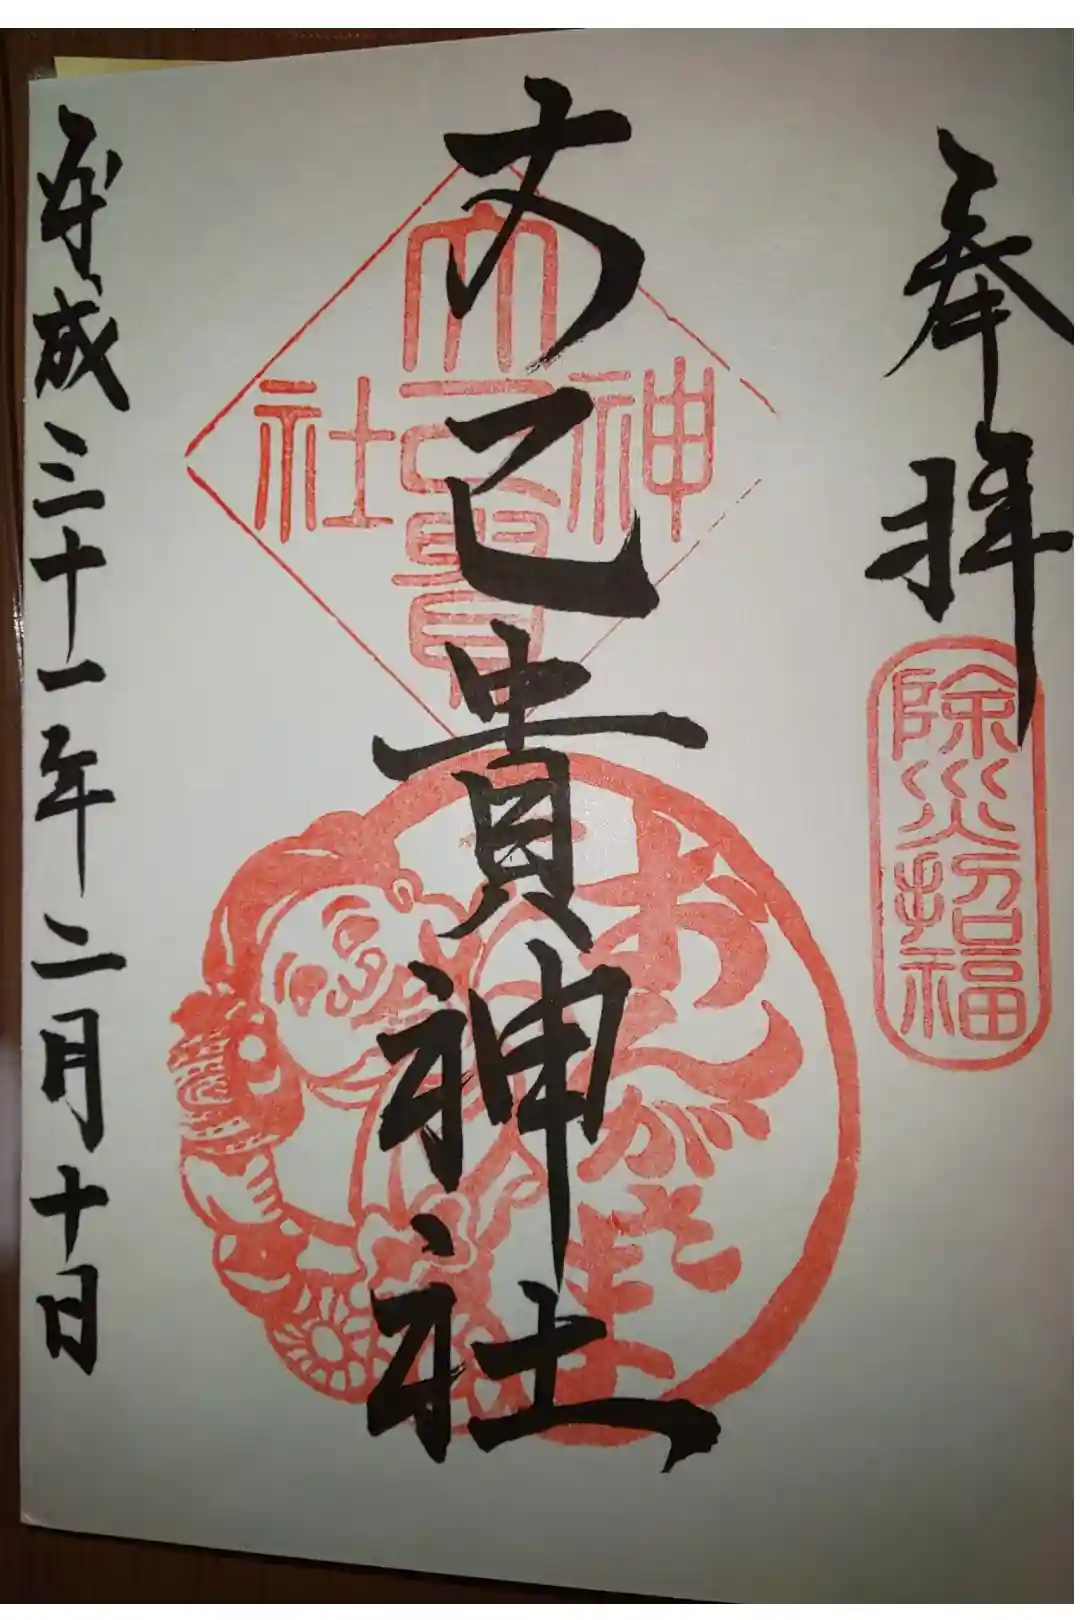 奉拝
除災招福
大己貴神社
大己貴
神社
おんがさま
平成三十一年二月十日